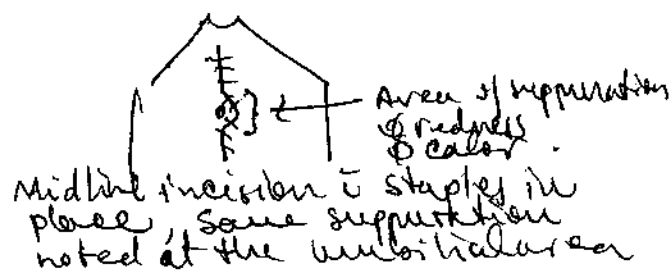 Area of suppuration
ø redness
ø calor.
Midline incision c̄ staples in
place, some suppuration
noted at the umbilical area